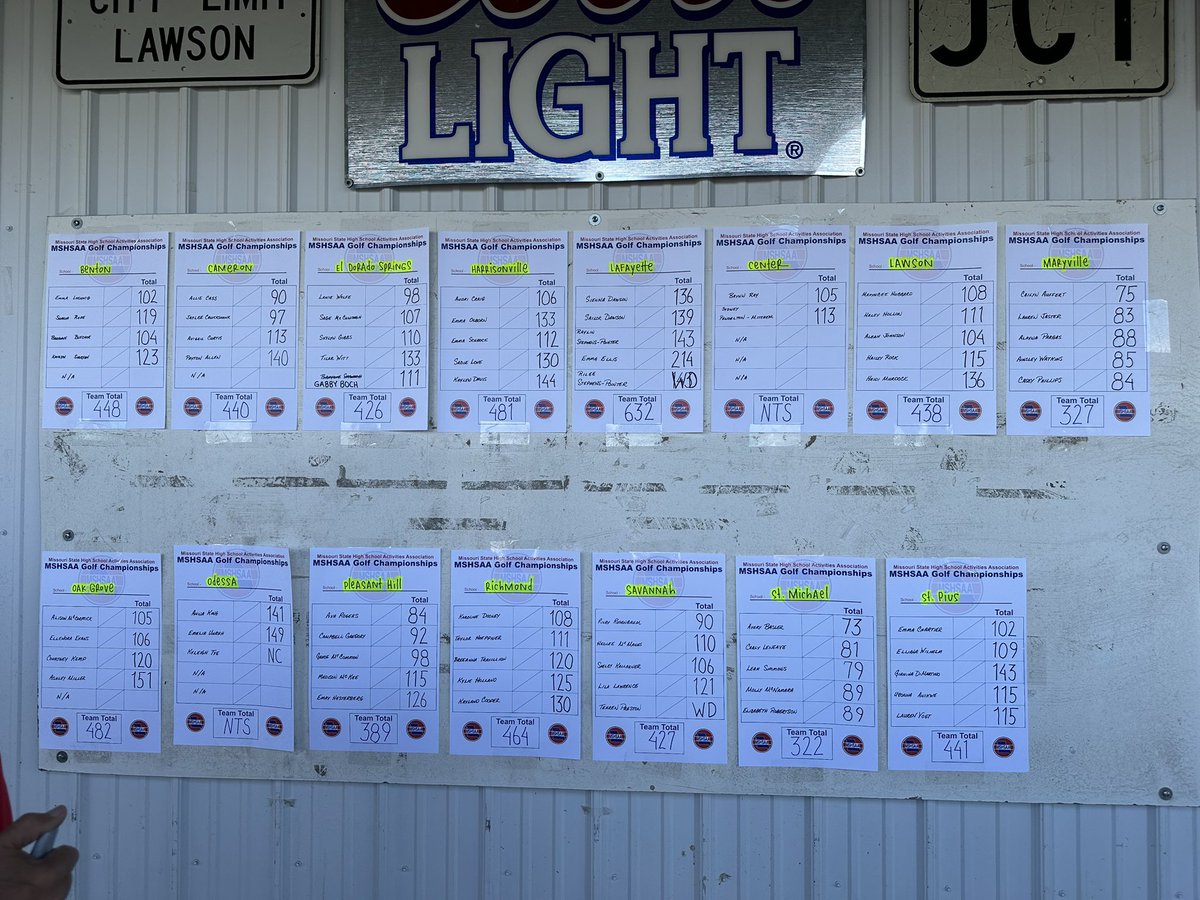 CITY LIMIT
LAWSON
LIGHT
®
JCT
Missouri State High School Activities Association
MSHSAA Golf Championships
School: BENTON
Total
102
119
104
123
N/A
Team Total
448
Missouri State High School Activities Association
MSHSAA Golf Championships
School: CAMERON
Total
ALLIE CASS 90
97
AVIGAIL CURTIS 113
PAYTON ALLEN 140
N/A
Team Total
440
Missouri State High School Activities Association
MSHSAA Golf Championships
School: EL DORADO SPRINGS
Total
LANIE WOLFE 98
107
GIBBS 110
WITT 133
GABBY BOCH 111
Team Total
426
Missouri State High School Activities Association
MSHSAA Golf Championships
School: HARRISONVILLE
Total
CRAIG 106
EMMA OSBORN 133
EMMA 112
SADIE LOVE 130
DAVIS 144
Team Total
481
Missouri State High School Activities Association
MSHSAA Golf Championships
School: LAFAYETTE
Total
SIENNA DAWSON 136
SAILOR DAWSON 139
RAELIN
STEPHENS-POINTER 143
EMMA ELLIS 214
RILEE
STEPHENS-POINTER WD
Team Total
632
Missouri State High School Activities Association
MSHSAA Golf Championships
School: CENTER
Total
RAY 105
SYDNEY
113
N/A
N/A
N/A
Team Total
NTS
Missouri State High School Activities Association
MSHSAA Golf Championships
School: LAWSON
Total
HUBBARD 108
HALEY 111
JOHNSON 104
HAILEY ROCK 115
HEIDI MURDOCK 136
Team Total
438
Missouri State High School Activities Association
MSHSAA Golf Championships
School: MARYVILLE
Total
CAILYN AUFFERT 75
LAUREN JASTER 83
ALAYNA PARGAS 88
AINSLEY WATKINS 85
CASEY PHILLIPS 84
Team Total
327
Missouri State High School Activities Association
MSHSAA Golf Championships
School: OAK GROVE
Total
ALISON McCORMICK 105
EVANS 106
COURTNEY KEMP 120
ASHLEY MILLER 151
N/A
Team Total
482
Missouri State High School Activities Association
MSHSAA Golf Championships
School: ODESSA
Total
KING 141
149
NC
N/A
N/A
Team Total
NTS
Missouri State High School Activities Association
MSHSAA Golf Championships
School: PLEASANT HILL
Total
AVA ROGERS 84
CAMPBELL GREGORY 92
98
MADISON McKEE 115
EMMY HESTERBERG 126
Team Total
389
Missouri State High School Activities Association
MSHSAA Golf Championships
School: RICHMOND
Total
108
TAYLOR 111
BREANNA 120
KYLIE HOLLAND 125
COOPER 130
Team Total
464
Missouri State High School Activities Association
MSHSAA Golf Championships
School: SAVANNAH
Total
RILEY 90
110
SHELBY 106
LILA LAWRENCE 121
PRESTON WD
Team Total
427
Missouri State High School Activities Association
MSHSAA Golf Championships
School: ST. MICHAEL
Total
AVERY BESLER 73
81
LEAH SIMMONS 79
MOLLY McNAMARA 89
ELIZABETH ROBERTSON 89
Team Total
322
Missouri State High School Activities Association
MSHSAA Golf Championships
School: ST. PIUS
Total
EMMA CHARTIER 102
ELLIANA WILHELM 109
GIANNA DiMARTINO 143
115
LAUREN VOGT 115
Team Total
441